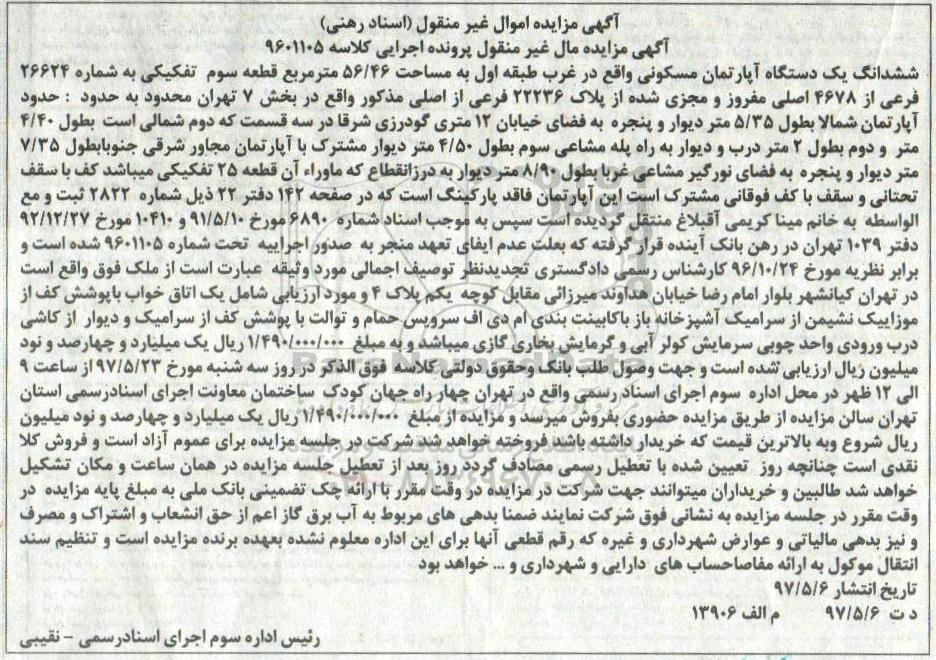 آگهی مزایده اموال غیر منقول (اسناد رهنی)
آگهی مزایده مال غیر منقول پرونده اجرایی کلاسه ۹۶۰۱۱۰۵
ششدانگ یک دستگاه آپارتمان مسکونی واقع در غرب طبقه اول به مساحت ۵۶/۴۶ مترمربع قطعه سوم تفکیکی به شماره ۲۶۶۲۴
فرعی از ۴۶۷۸ اصلی مفروز و مجزی شده از پلاک ۲۲۲۳۶ فرعی از اصلی مذکور واقع در بخش ۷ تهران محدود به حدود : حدود
آپارتمان شمالا بطول ۵/۳۵ متر دیوار و پنجره به فضای خیابان ۱۲ متری گودرزی شرقا در سه قسمت که دوم شمالی است بطول ۴/۴۰
متر و دوم بطول ۲ متر درب و دیوار به راه پله مشاعی سوم بطول ۴/۵۰ متر دیوار مشترک با آپارتمان مجاور شرقی جنوبابطول ۷/۳۵
متر دیوار و پنجره به فضای نورگیر مشاعی غربا بطول ۸/۹۰ متر دیوار به درزانقطاع که ماوراء آن قطعه ۲۵ تفکیکی میباشد کف با سقف
تحتانی و سقف با کف فوقانی مشترک است این آپارتمان فاقد پارکینگ است که در صفحه ۱۴۲ دفتر ۲۲ ذیل شماره ۲۸۲۲ ثبت و مع
الواسطه به خانم مینا کریمی آقبلاغ منتقل گردیده است سپس به موجب اسناد شماره ۶۸۹۰ مورخ ۹۱/۵/۱۰ و ۱۰۴۱۰ مورخ ۹۲/۱۲/۲۷
دفتر ۱۰۳۹ تهران در رهن بانک آینده قرار گرفته که بعلت عدم ایفای تعهد منجر به صدور اجراییه تحت شماره ۹۶۰۱۱۰۵ شده است و
برابر نظریه مورخ ۹۶/۱۰/۲۴ کارشناس رسمی دادگستری تجدیدنظر توصیف اجمالی مورد وثیقه عبارت است از ملک فوق واقع است
در تهران کیانشهر بلوار امام رضا خیابان هداوند میرزائی مقابل کوچه یکم پلاک ۴ و مورد ارزیابی شامل یک اتاق خواب باپوشش کف از
موزاییک نشیمن از سرامیک آشپزخانه باز باکابینت بندی ام دی اف سرویس حمام و توالت با پوشش کف از سرامیک و دیوار از کاشی
درب ورودی واحد چوبی سرمایش کولر آبی و گرمایش بخاری گازی میباشد و به مبلغ ۱/۴۹۰/۰۰۰/۰۰۰ ریال یک میلیارد و چهارصد و نود
میلیون ریال ارزیابی شده است و جهت وصول طلب بانک وحقوق دولتی کلاسه فوق الذکر در روز سه شنبه مورخ ۹۷/۵/۲۳ از ساعت ۹
الی ۱۲ ظهر در محل اداره سوم اجرای اسناد رسمی واقع در تهران چهار راه جهان کودک ساختمان معاونت اجرای اسنادرسمی استان
تهران سالن مزایده از طریق مزایده حضوری بفروش میرسد و مزایده از مبلغ ۱/۴۹۰/۰۰۰/۰۰۰ ریال یک میلیارد و چهارصد و نود میلیون
ریال شروع وبه بالاترین قیمت که خریدار داشته باشد فروخته خواهد شد شرکت در جلسه مزایده برای عموم آزاد است و فروش کلا
نقدی است چنانچه روز تعیین شده با تعطیل رسمی مصادف گردد روز بعد از تعطیل جلسه مزایده در همان ساعت و مکان تشکیل
خواهد شد طالبین و خریداران میتوانند جهت شرکت در مزایده در وقت مقرر با ارائه چک تضمینی بانک ملی به مبلغ پایه مزایده در
وقت مقرر در جلسه مزایده به نشانی فوق شرکت نمایند ضمنا بدهی های مربوط به آب برق گاز اعم از حق انشعاب و اشتراک و مصرف
و نیز بدهی مالیاتی و عوارض شهرداری و غیره که رقم قطعی آنها برای این اداره معلوم نشده بعهده برنده مزایده است و تنظیم سند
انتقال موکول به ارائه مفاصاحساب های دارایی و شهرداری و ... خواهد بود
تاریخ انتشار ۹۷/۵/۶
د ت ۹۷/۵/۶ م الف ۱۳۹۰۶
رئیس اداره سوم اجرای اسنادرسمی - نقیبی